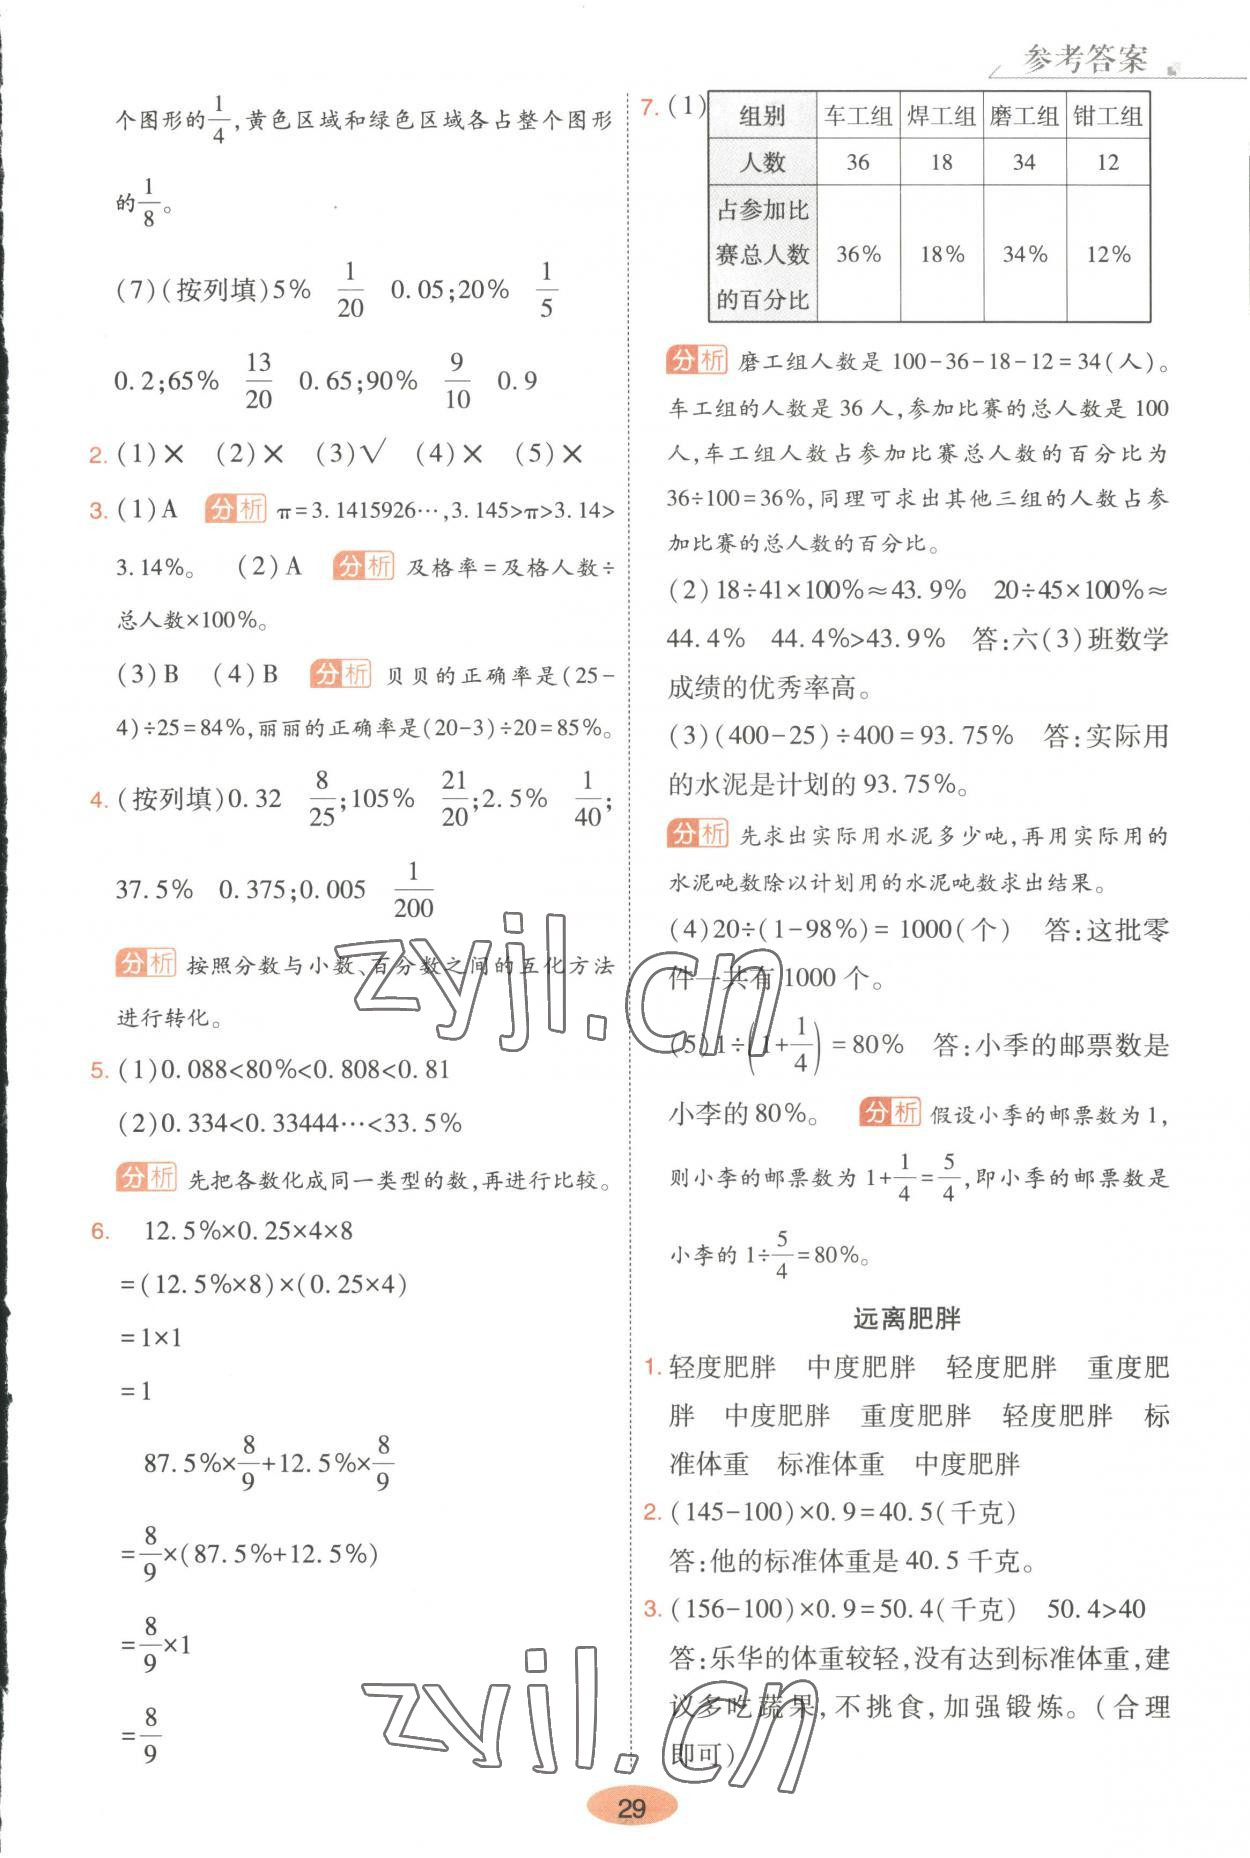 参考答案
个图形的1/4,黄色区域和绿色区域各占整个图形
的1/8。
(7)(按列填)5% 1/20 0.05;20% 1/5
0.2;65% 13/20 0.65;90% 9/10 0.9
2. (1)× (2)× (3)√ (4)× (5)×
3. (1)A 分析 π=3.1415926…,3.145>π>3.14>
3.14%。 (2)A 分析 及格率=及格人数÷
总人数×100%。
(3)B (4)B 分析 贝贝的正确率是(25-
4)÷25=84%,丽丽的正确率是(20-3)÷20=85%。
4. (按列填)0.32 8/25;105% 21/20;2.5% 1/40;
37.5% 0.375;0.005 1/200
分析 按照分数与小数、百分数之间的互化方法
进行转化。
5. (1)0.088<80%<0.808<0.81
(2)0.334<0.33444…<33.5%
分析 先把各数化成同一类型的数,再进行比较。
6. 12.5%×0.25×4×8
=(12.5%×8)×(0.25×4)
=1×1
=1
87.5%×8/9+12.5%×8/9
=8/9×(87.5%+12.5%)
=8/9×1
=8/9
7. (1)
组别 车工组 焊工组 磨工组 钳工组
人数 36 18 34 12
占参加比
赛总人数 36% 18% 34% 12%
的百分比
分析 磨工组人数是 100-36-18-12=34(人)。
车工组的人数是 36 人,参加比赛的总人数是 100
人,车工组人数占参加比赛总人数的百分比为
36÷100=36%,同理可求出其他三组的人数占参
加比赛的总人数的百分比。
(2)18÷41×100%≈43.9% 20÷45×100%≈
44.4% 44.4%>43.9% 答:六(3)班数学
成绩的优秀率高。
(3)(400-25)÷400=93.75% 答:实际用
的水泥是计划的 93.75%。
分析 先求出实际用水泥多少吨,再用实际用的
水泥吨数除以计划用的水泥吨数求出结果。
(4)20÷(1-98%)=1000(个) 答:这批零
件一共有 1000 个。
(5)1÷(1+1/4)=80% 答:小季的邮票数是
小李的 80%。 分析 假设小季的邮票数为 1,
则小李的邮票数为 1+1/4=5/4,即小季的邮票数是
小李的 1÷5/4=80%。
远离肥胖
1. 轻度肥胖 中度肥胖 轻度肥胖 重度肥
胖 中度肥胖 重度肥胖 轻度肥胖 标
准体重 标准体重 中度肥胖
2. (145-100)×0.9=40.5(千克)
答:他的标准体重是 40.5 千克。
3. (156-100)×0.9=50.4(千克) 50.4>40
答:乐华的体重较轻,没有达到标准体重,建
议多吃蔬果,不挑食,加强锻炼。(合理
即可)
zyjl.cn
zyjl.cn
29